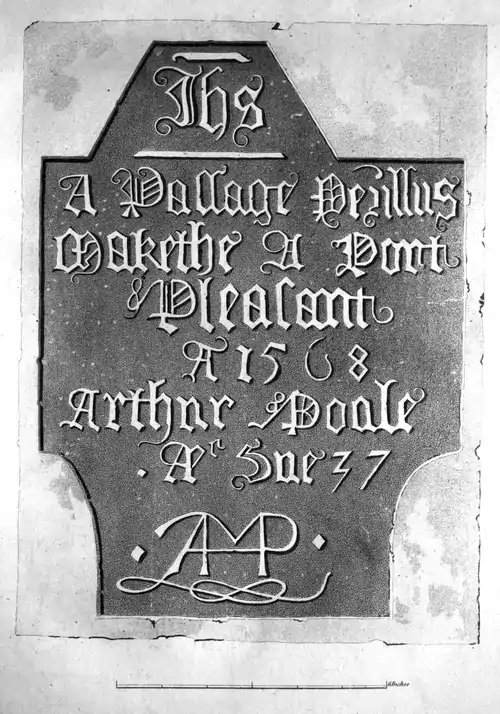 Ihs
A Passage Perillus
Makethe A Port
Pleasant
A 1568
Arthur Poole
Æᶜ Sue 37
AMP
6 Inches